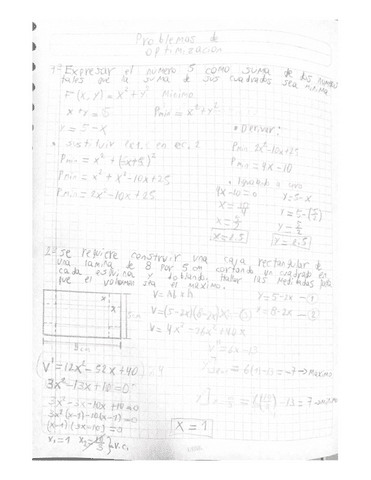 Problemas de
optimización
1º Expresar el número 5 como suma de dos números
tales que la suma de sus cuadrados sea mínima
F(x,y)=x²+y² Minimo
x+y=5 Pmin=x²+y²
y=5-x
• Derivar:
• sustituir ec.1 en ec.2
Pmin 2x²-10x+25
Pmin=x²+(-x+5)²
Pmin=4x-10
Pmin=x²+x²-10x+25
• Igualado a cero
Pmin=2x²-10x+25
4x-10=0
x=10/4
x=5/2
x=2.5
y=5-x
y=5-(5/2)
y=5/2
y=2.5
2º se requiere construir una caja rectangular de
una lamina de 8 por 5 cm cortando un cuadrado en
cada esquina y doblando. Hallar las medidas para
que el volumen sea el maximo.
x
x
5cm
8cm
y=5-2x
x=8-2x
V=(5-2x)(8-2x)
V=4x³-26x²+40x
V'=12x²-52x+40
3x²-13x+10=0
3x²-3x-10x+10=0
3x²(x-1)-10(x-1)=0
(x-1)(3x-10)=0
x₁=1 x₂=10/3 }v.c.
V''=6x-13
6(1)-13=-7→maximo
-13=7→
x=1